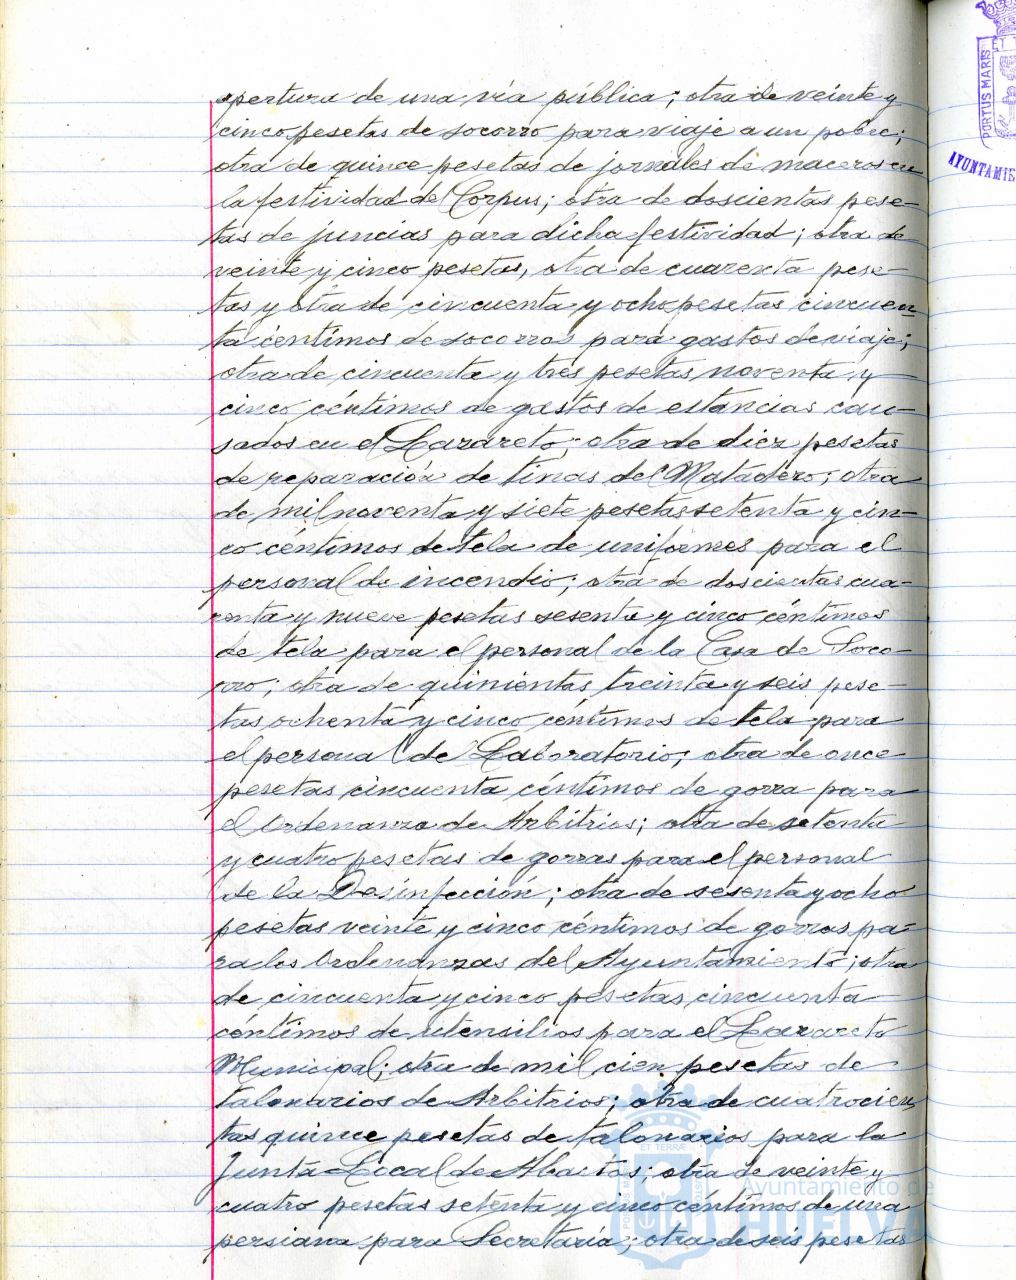 apertura de una vía pública; otra de veinte y
cinco pesetas de socorro para viaje a un pobre;
otra de quince pesetas de jornales de maceros en
la festividad del Corpus; otra de doscientas pese-
tas de juncias para dicha festividad; otra de
veinte y cinco pesetas, otra de cuarenta pese-
tas y otra de cincuenta y ocho pesetas cincuen
ta céntimos de socorros para gastos de viaje;
otra de cincuenta y tres pesetas noventa y
cinco céntimos de gastos de estancias cau-
sados en el Lazareto; otra de diez pesetas
de reparación de tinas del Matadero; otra
de mil noventa y siete pesetas setenta y cin-
co céntimos de tela de uniformes para el
personal de incendio; otra de doscientas cua-
renta y nueve pesetas sesenta y cinco céntimos
de tela para el personal de la Casa de Soco-
rro; otra de quinientas treinta y seis pese-
tas ochenta y cinco céntimos de tela para
el personal de Laboratorio; otra de once
pesetas cincuenta céntimos de gorra para
el Ordenanza de Arbitrios; otra de setenta
y cuatro pesetas de gorras para el personal
de la Desinfección; otra de sesenta y ocho
pesetas veinte y cinco céntimos de gorras pa-
ra los Ordenanzas del Ayuntamiento; otra
de cincuenta y cinco pesetas cincuenta
céntimos de utensilios para el Lazareto
Municipal; otra de mil cien pesetas de
talonarios de Arbitrios; otra de cuatrocien
tas quince pesetas de talonarios para la
Junta Local de Abastos; otra de veinte y
cuatro pesetas setenta y cinco céntimos de una
persiana para Secretaría; otra de seis pesetas
PORTUS MARIS
AYUNTAMIE
Ayuntamiento de
HUELVA